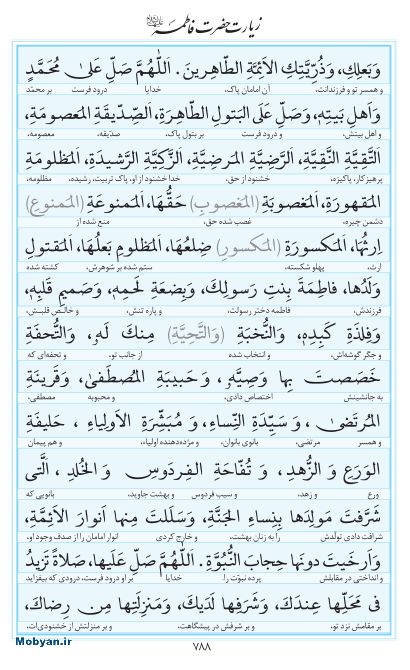 زیارت حضرت فاطمه علیهاالسلام
وَبَعلِكِ، وَذُرِّيَّتِكِ الاَئِمَّةِ الطّاهِرينَ. اَللّٰهُمَّ صَلِّ عَلىٰ مُحَمَّدٍ
و همسر تو و فرزندانت، آن امامان پاک، خدایا درود فرست بر محمّد
وَاَهلِ بَيتِهِ، وَصَلِّ عَلَى البَتولِ الطّاهِرَةِ، اَلصِّدّيقَةِ المَعصومَةِ،
و اهل بیتش، و درود فرست بر بتول پاک، صدّیقه، معصومه،
اَلتَّقِيَّةِ النَّقِيَّةِ، اَلرَّضِيَّةِ المَرضِيَّةِ، اَلزَّكِيَّةِ الرَّشيدَةِ، اَلمَظلومَةِ
پرهیزکار، پاکیزه، خشنود از حق، خدا خشنود از او، پاک تربیت، رشیده، مظلومه،
المَقهورَةِ، اَلمَغصوبَةِ (المَغصوبِ) حَقُّهَا، اَلمَمنوعَةِ (المَمنوعِ)
دشمن چیره، غصب شده حق، منع شده از
اِرثُهَا، اَلمَكسورَةِ (المَكسورِ) ضِلعُهَا، اَلمَظلومِ بَعلُهَا، اَلمَقتولِ
ارث، پهلو شکسته، ستم شده بر شوهرش، کشته شده
وَلَدُها، فاطِمَةَ بِنتِ رَسولِكَ، وَبِضعَةِ لَحمِهِ، وَصَميمِ قَلبِهِ،
فرزندش، فاطمه دختر رسولت، و پاره تنش، و خالص قلبش،
وَفِلذَةِ كَبِدِهِ، وَالنُّخبَةِ (وَالتَّحِيَّةِ) مِنكَ لَهُ، وَالتُّحفَةِ
و جگر گوشه‌اش، و انتخاب شده از جانب تو، و تحفه‌ای که
خَصَصتَ بِها وَصِيَّهُ، وَحَبيبَةِ المُصطَفىٰ، وَقَرينَةِ
به جانشینش اختصاص دادی، و محبوبه مصطفی،
المُرتَضىٰ، وَسَيِّدَةِ النِّساءِ، وَمُبَشِّرَةِ الاَولِياءِ، حَليفَةِ
و همسر مرتضی، بانوی بانوان، و مژده‌دهنده اولیاء، و هم پیمان
الوَرَعِ وَالزُّهدِ، وَتُفّاحَةِ الفِردَوسِ وَالخُلدِ، اَلَّتى
ورع و زهد، و سیب فردوس و بهشت جاوید، بانویی که
شَرَّفتَ مَولِدَها بِنِساءِ الجَنَّةِ، وَسَلَلتَ مِنها اَنوارَ الاَئِمَّةِ،
شرافت دادی تولّدش را به زنان بهشت، و خارج کردی انوار امامان را از صدف وجود او،
وَاَرخَيتَ دونَها حِجابَ النُّبُوَّةِ. اَللّٰهُمَّ صَلِّ عَلَيها، صَلاةً تَزيدُ
و انداختی در مقابلش پرده نبوّت را خدایا بر او درود فرست، درودی که بیفزاید
فى مَحَلِّها عِندَكَ، وَشَرَفِها لَدَيكَ، وَمَنزِلَتِها مِن رِضاكَ،
بر مقامش نزد تو، و بر شرفش در پیشگاهت، و بر منزلتش از خشنودی‌ات،
۷۸۸
Mobyan.ir